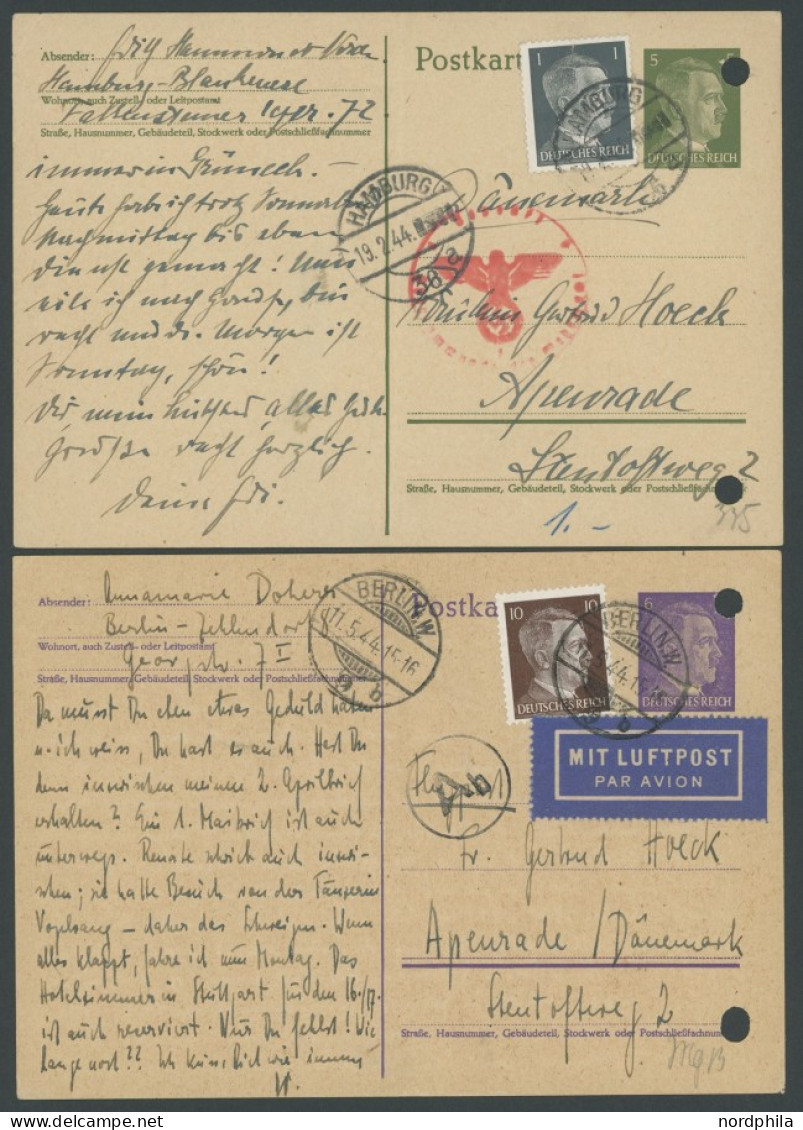 Absender:
Hamburg-Blankenese
Wohnort, auch Zustell- oder Leitpostamt
72
Straße, Hausnummer, Gebäudeteil, Stockwerk oder Postschließfachnummer
immer in
Heute hab ich trotz
Nachmittag bis eben
Dienst gemacht! Nun
eile ich nach Hause, bin
recht müde. Morgen ist
Sonntag, schön!
Dir mein alles Gute
Grüße recht herzlich.
Deine
Postkart
1
DEUTSCHES REICH
5 5
DEUTSCHES REICH
HAMBURG
HAMBURG
19.2.44.
36
a
Dänemark
Fräulein Gertrud Hoeck
Apenrade
Stentoftweg 2
Straße, Hausnummer, Gebäudeteil, Stockwerk oder Postschließfachn
1.-
Absender: Annamarie
Berlin-Zehlendorf
Wohnort, auch Zustell- oder Leitpostamt
7 I
Straße, Hausnummer, Gebäudeteil, Stockwerk oder Postschließfachnummer
Da musst Du eben etwas Geduld haben
u. ich weiss, Du hast es auch. Hast Du
denn inzwischen meinen 2. Aprilbrief
erhalten? Ein 1. Maibrief ist auch
unterwegs. Renate schrieb auch inzwi-
schen; sie hatte Besuch von der Tänzerin
Vogelsang – daher das Schweigen. Wenn
alles klappt, fahre ich nun Montag. Das
Hotelzimmer in Stuttgart für den 16./17.
ist auch reserviert. Nur Du fehlst! Wie
lange noch?? Ich küss Dich wie immer
Postka
10 10
DEUTSCHES REICH
6
DEUTSCHES REICH
BERLIN.W
11.5.44.15-16
b
BERLIN.W
11.5.44.15-16
b
MIT LUFTPOST
PAR AVION
Flugpost
Ab
Fr. Gertrud Hoeck
Apenrade / Dänemark
Stentoftweg 2
Straße, Hausnummer, Gebäudeteil, Stockwerk oder Postschließfachnum
www.delcampe.net
nordphila